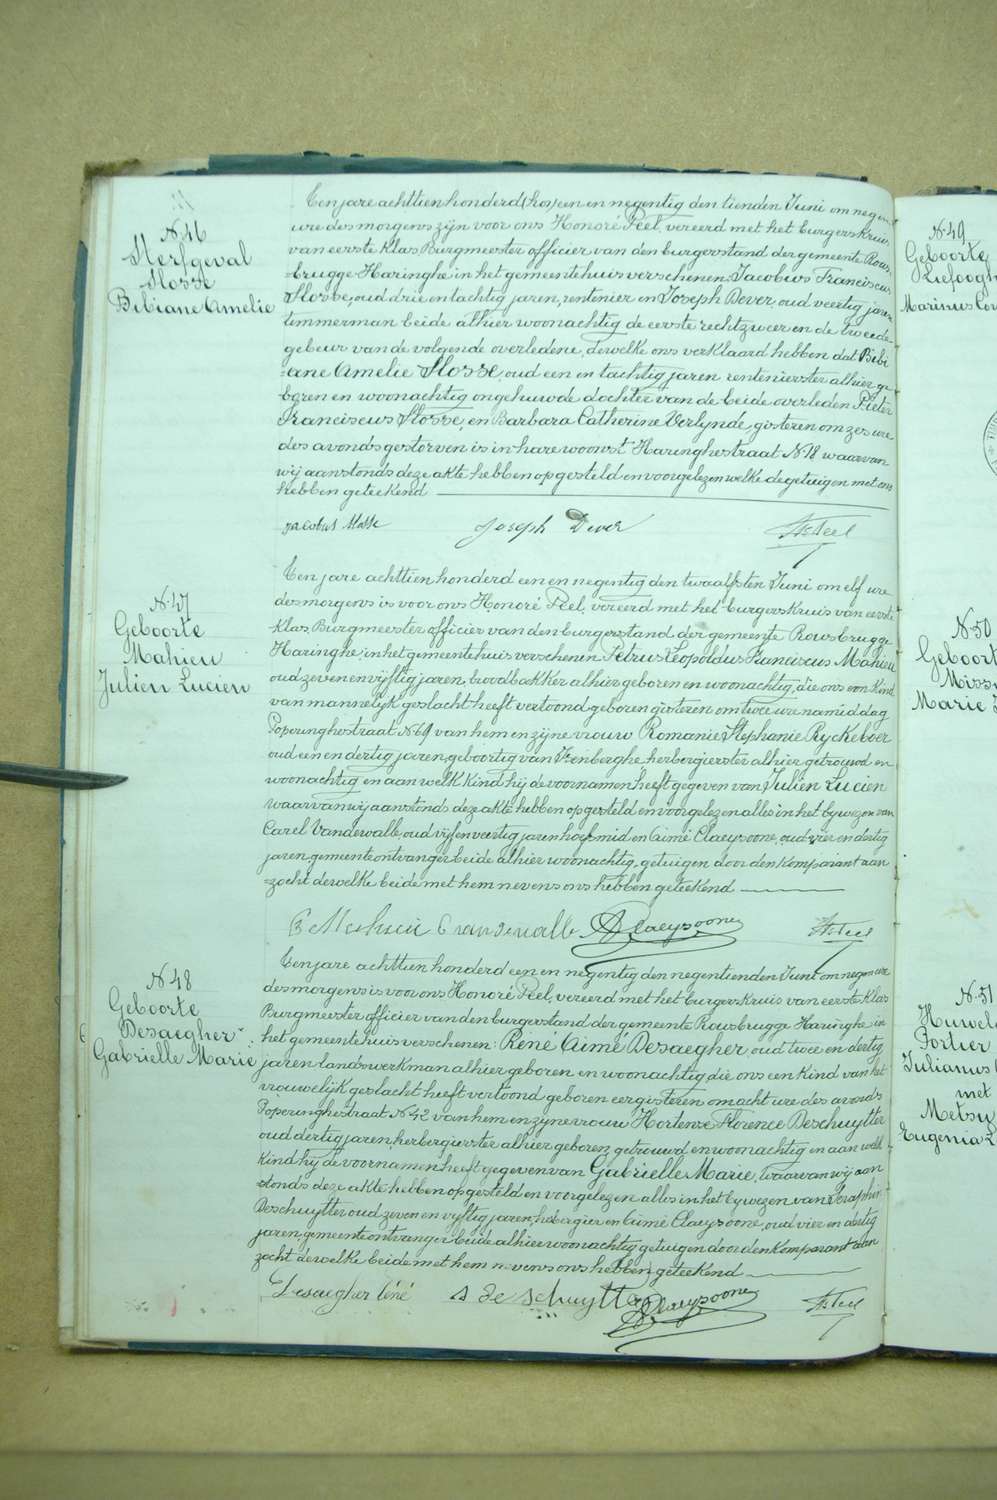 N. 46
Sterfgeval
Slosse
Bibiane Amelie
Ten jare achttien honderd (ho) een en negentig den tienden Juni om negen
ure des morgens zijn voor ons Honoré Peel, vereerd met het burgerskruis
van eerste klas Burgmeester officier van den burgerstand der gemeente Rous-
brugge-Haringhe, in het gemeentehuis verschenen: Jacobus Franciscus
Slosse, oud drie en tachtig jaren, rentenier en Joseph Dever, oud veertig jaren
timmerman beide alhier woonachtig de eerste rechtzweer en de tweede
gebeur van de volgende overledene, dewelke ons verklaard hebben dat Bibi
-ane Amelie Slosse, oud een en tachtig jaren rentenierster alhier ge-
boren en woonachtig ongehuwde dochter van de beide overleden Pieter
Franciscus Slosse, en Barbara Catherine Verlynde, gisteren om zes ure
des avonds gestorven is in hare woonst Haringhestraat N. 18 waarvan
wij aanstonds deze akte hebben opgesteld en voorgelezen welke de getuigen met ons
hebben geteekend
Jacobus Slosse Joseph Dever H. Peel
N. 47
Geboorte
Mahieu
Julien Lucien
Ten jare achttien honderd een en negentig den twaalfsten Juni om elf ure
des morgens is voor ons Honoré Peel, vereerd met het burgerskruis van eerste
klas, Burgmeester officier van den burgerstand der gemeente Rousbrugge
Haringhe, in het gemeentehuis verschenen Petrus Leopoldus Franciscus Mahieu
oud zeven en vijftig jaren, broodbakker alhier geboren en woonachtig, die ons een kind
van mannelijk geslacht heeft vertoond geboren gisteren om twee ure namiddag
Poperinghestraat N. 69 van hem en zijne vrouw Romanie Stephanie Ryckeboer
oud een en dertig jaren geboortig van herbergierster alhier getrouwd en
woonachtig en aan welk kind hij de voornamen heeft gegeven van Julien Lucien
waarvan wij aanstonds deze akte hebben opgesteld en voorgelezen alles in het bywezen van
Carel Vandewalle, oud vijf en veertig jaren hoefsmid en Aimé Claeysoone, oud vier en dertig
jaren, gemeenteontvanger beide alhier woonachtig, getuigen door den komparant aan
-zocht dewelke beide met hem nevens ons hebben geteekend
Mahieu C vandewalle A Claeysoone H. Peel
N. 48
Geboorte
Desaegher
Gabrielle Marie
Ten jare achttien honderd een en negentig den negentienden Juni om negen ure
des morgens is voor ons Honoré Peel, vereerd met het burgerskruis van eerste klas
Burgmeester officier van den burgerstand der gemeente Rousbrugge Haringhe in
het gemeentehuis verschenen: René Aimé Desaegher, oud twee en dertig
jaren landswerkman alhier geboren en woonachtig die ons een kind van het
vrouwelijk geslacht heeft vertoond geboren eergisteren om acht ure des avonds
Poperinghestraat N. 42 van hem en zijne vrouw Hortense Florence Deschuytter
oud dertig jaren, herbergierster alhier geboren, getrouwd en woonachtig en aan welk
kind hij de voornamen heeft gegeven van Gabrielle Marie, waarvan wij aan
-stonds deze akte hebben opgesteld en voorgelezen alles in het bywezen van Seraphin
Deschuytter oud zeven en vijftig jaren, herbergier en Aimé Claeysoone, oud vier en dertig
jaren, gemeenteontvanger beide alhier woonachtig getuigen door den komparant aan
zocht dewelke beide met hem nevens ons hebben geteekend
Desaegher Réné S de schuytter A Claeysoone H. Peel
N. 49
Geboorte
Liefoogh
Marinus
N. 50
Geboorte
Marie
N. 51
Huwel
Portier
Julianus
met
Metsu
Eugenia